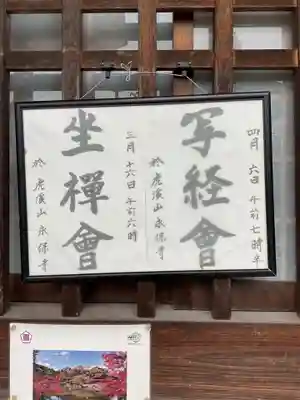 四月 六日 午前七時半
写経會
於 虎渓山 永保寺
三月 十六日 午前六時
坐禪會
於 虎渓山 永保寺